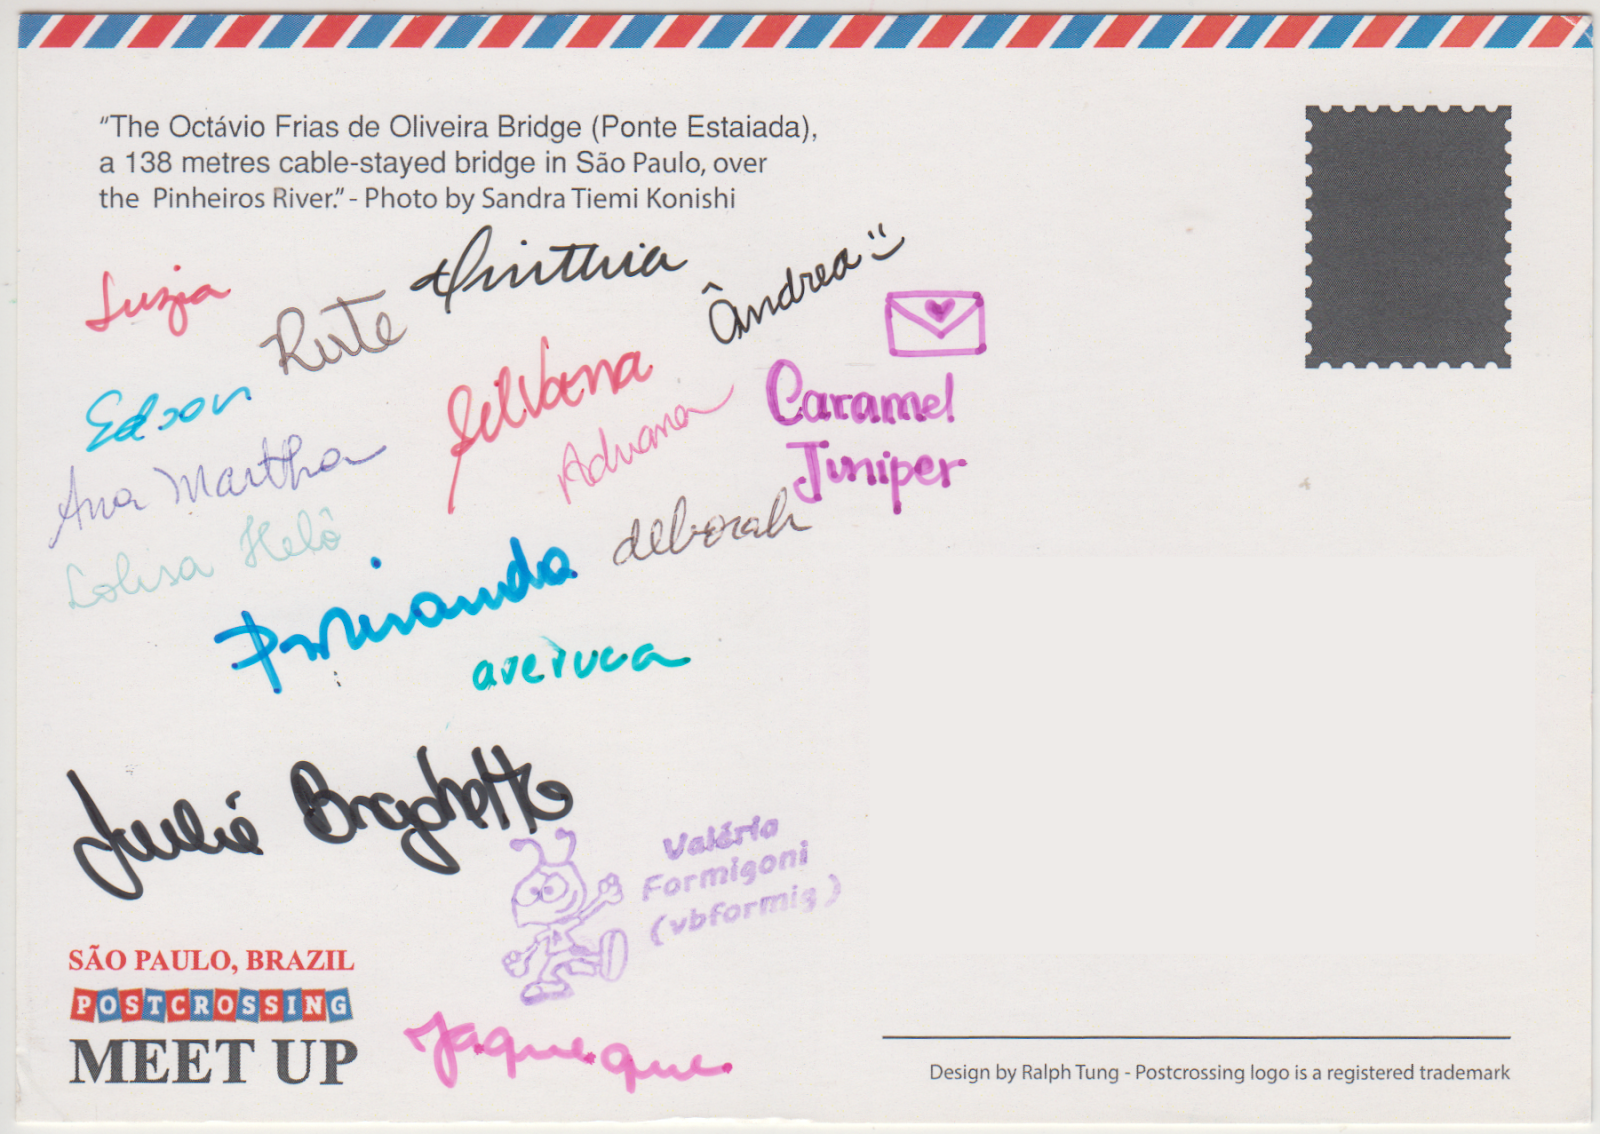 "The Octávio Frias de Oliveira Bridge (Ponte Estaiada),
a 138 metres cable-stayed bridge in São Paulo, over
the Pinheiros River." - Photo by Sandra Tiemi Konishi
Luzia
Rute
Cinthia
Ândrea
Edson
Silvana
Adriana
Caramel
Juniper
Ana Martha
Helô
deborah
Julie
Valéria
Formigoni
(vbformig)
SÃO PAULO, BRAZIL
POSTCROSSING
MEET UP
Jaqueque
Design by Ralph Tung - Postcrossing logo is a registered trademark